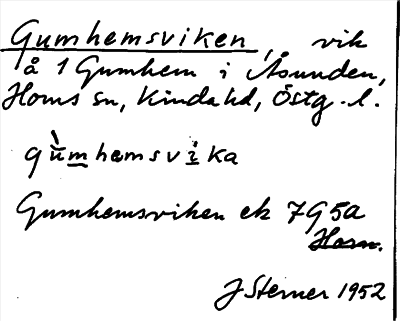 Gumhemsviken, vik
å 1 Gumhem i Åsunden,
Horns sn, Kinda hd, Östg. l.
gùmhemsvika
Gumhemsviken ek 7G5a
Horn.
J Sterner 1952